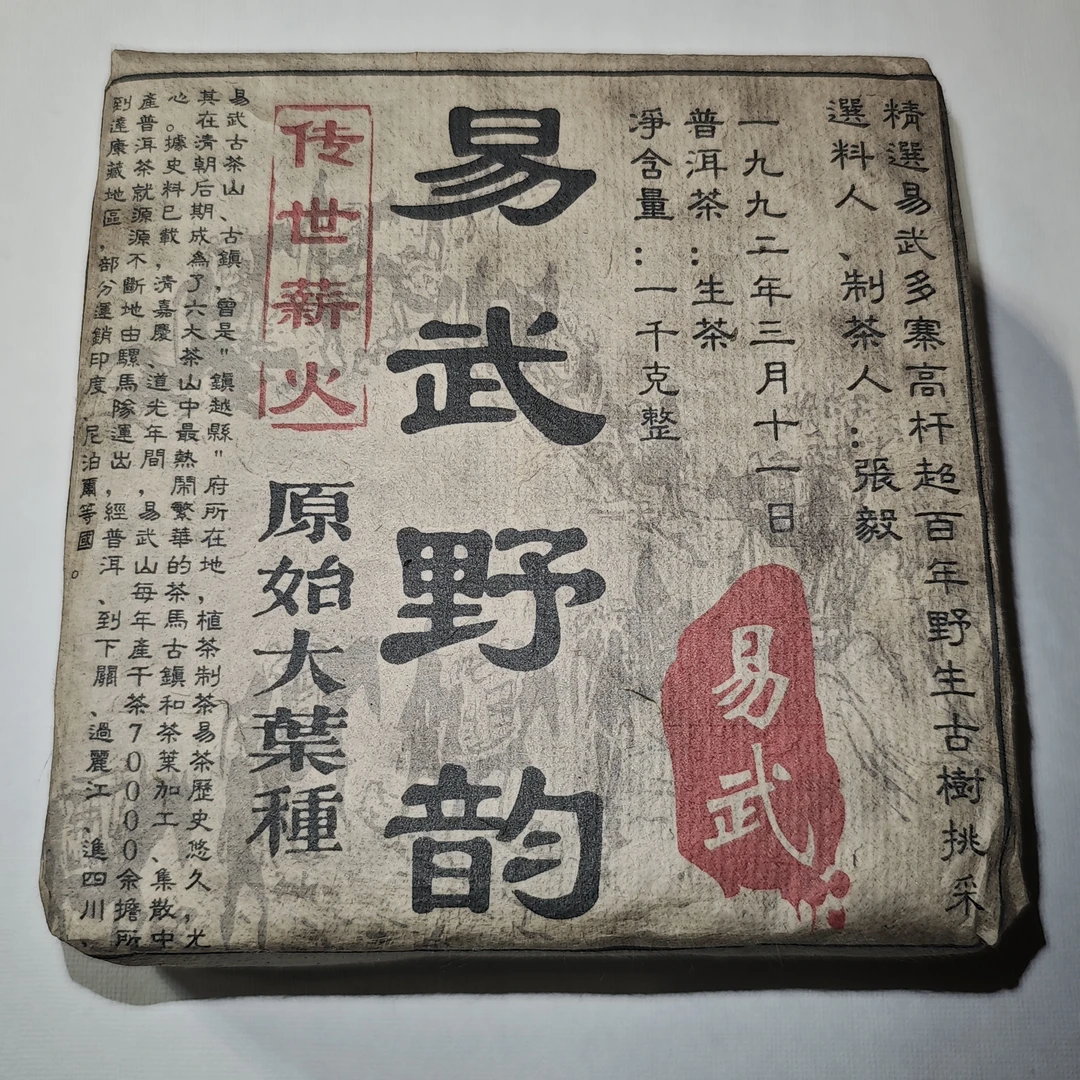 精選易武多寨高杆超百年野生古樹挑采
選料人、制茶人:張毅
一九九二年三月十一日
普洱茶:生茶
淨含量:一千克整
易武
易武野韵
传世薪火
原始大葉種
易武古茶山、古鎮,曾是"鎮越縣"府所在地,植茶制茶易茶歷史悠久,尤
其在清朝后期成為了六大茶山中最熱鬧繁華的茶馬古鎮和茶葉加工、集散中
心。據史料已載,清嘉慶、道光年間,易武山每年產干茶70000余擔所
產普洱茶就源源不斷地由騾馬隊運出,經普洱、到下關、過麗江、進四川、
到達康藏地區,部分運銷印度 尼泊爾等國。